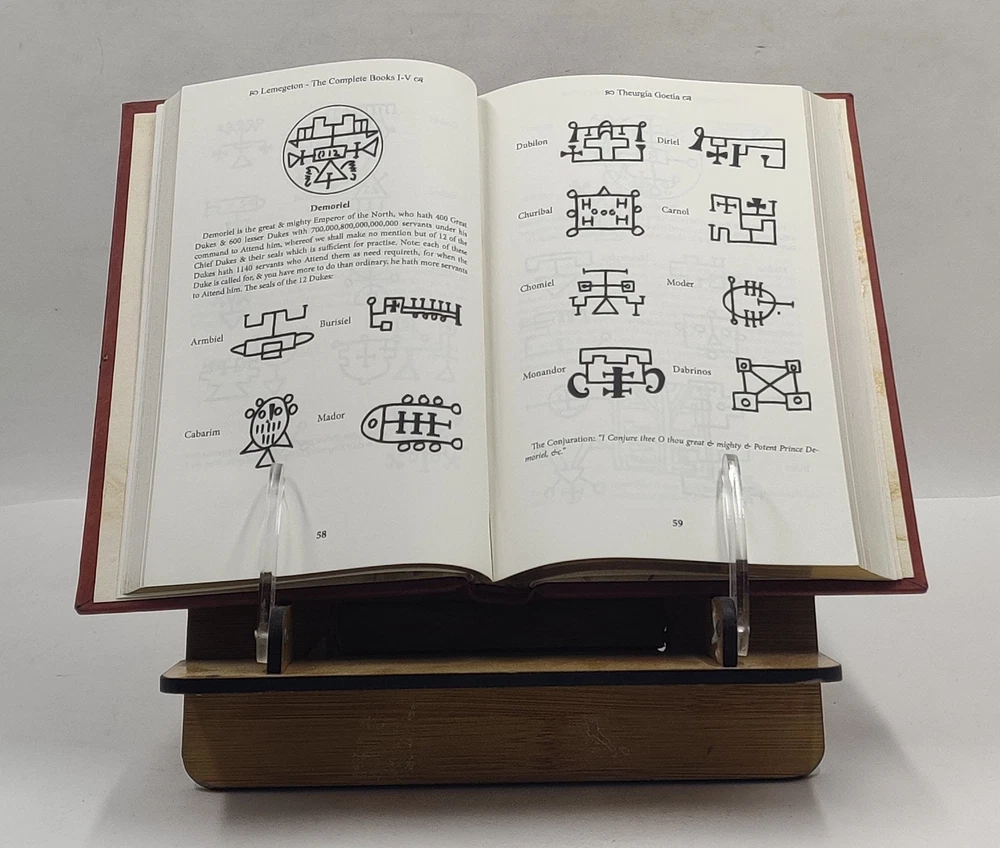 Lemegeton - The Complete Books I-V
Demoriel
Demoriel is the great & mighty Emperor of the North, who hath 400 Great
Dukes & 600 lesser Dukes with 700,000,800,000,000,000 servants under his
command to Attend him, whereof we shall make no mention but of 12 of the
Chief Dukes & their seals which is sufficient for practise. Note: each of these
Dukes hath 1140 servants who Attend them as need requireth, for when the
Duke is called for, & you have more to do than ordinary, he hath more servants
to Attend him. The seals of the 12 Dukes:
Armbiel Burisiel
Cabarim Mador
58
Theurgia Goetia
Dubilon Diriel
Churibal Carnol
Chomiel Moder
Monandor Dabrinos
The Conjuration: "I Conjure thee O thou great & mighty & Potent Prince De-
moriel, &c."
59